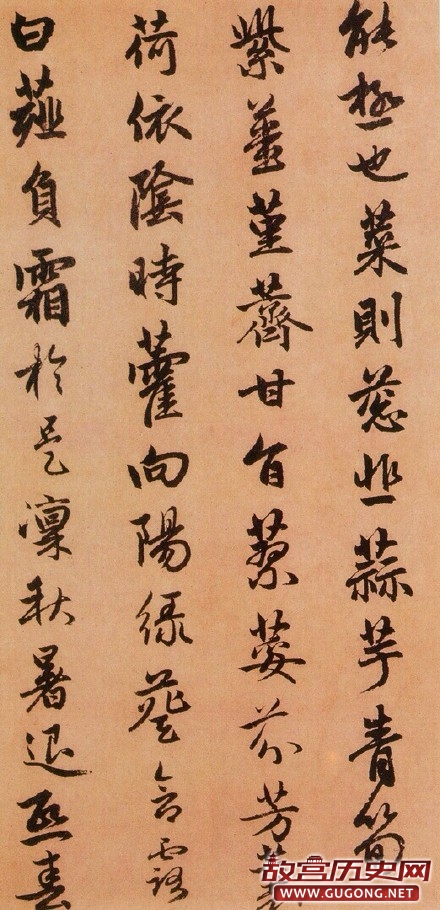 能極也菜則葱韭蒜芋青筍
紫薑堇薺甘旨蓼荽芬芳蘘
荷依陰時藿向陽綠葵含露
白薤負霜於是凜秋暑退熙春
故宫历史网
WWW.GUGONG.NET